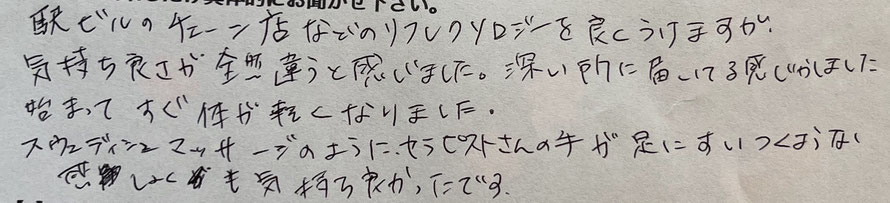 だけ具体的にお聞かせ下さい。
駅ビルのチェーン店などのリフレクソロジーを良くうけますが、
気持ち良さが全然違うと感じました。深い所に届いてる感じがしました
始まってすぐ体が軽くなりました。
スウェディッシュマッサージのように、セラピストさんの手が足にすいつくような
感しょくも気持ち良かったです。